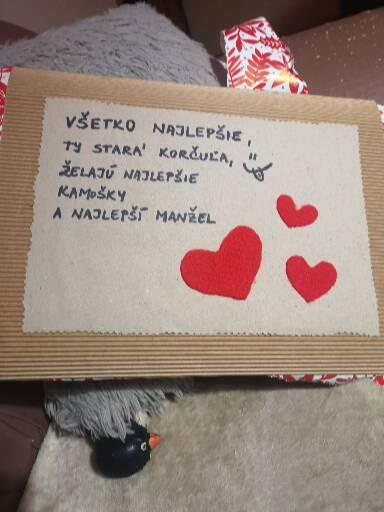 VŠETKO NAJLEPŠIE,
TY STARÁ KORČUĽA,
ŽELAJÚ NAJLEPŠIE
KAMOŠKY
A NAJLEPŠÍ MANŽEL